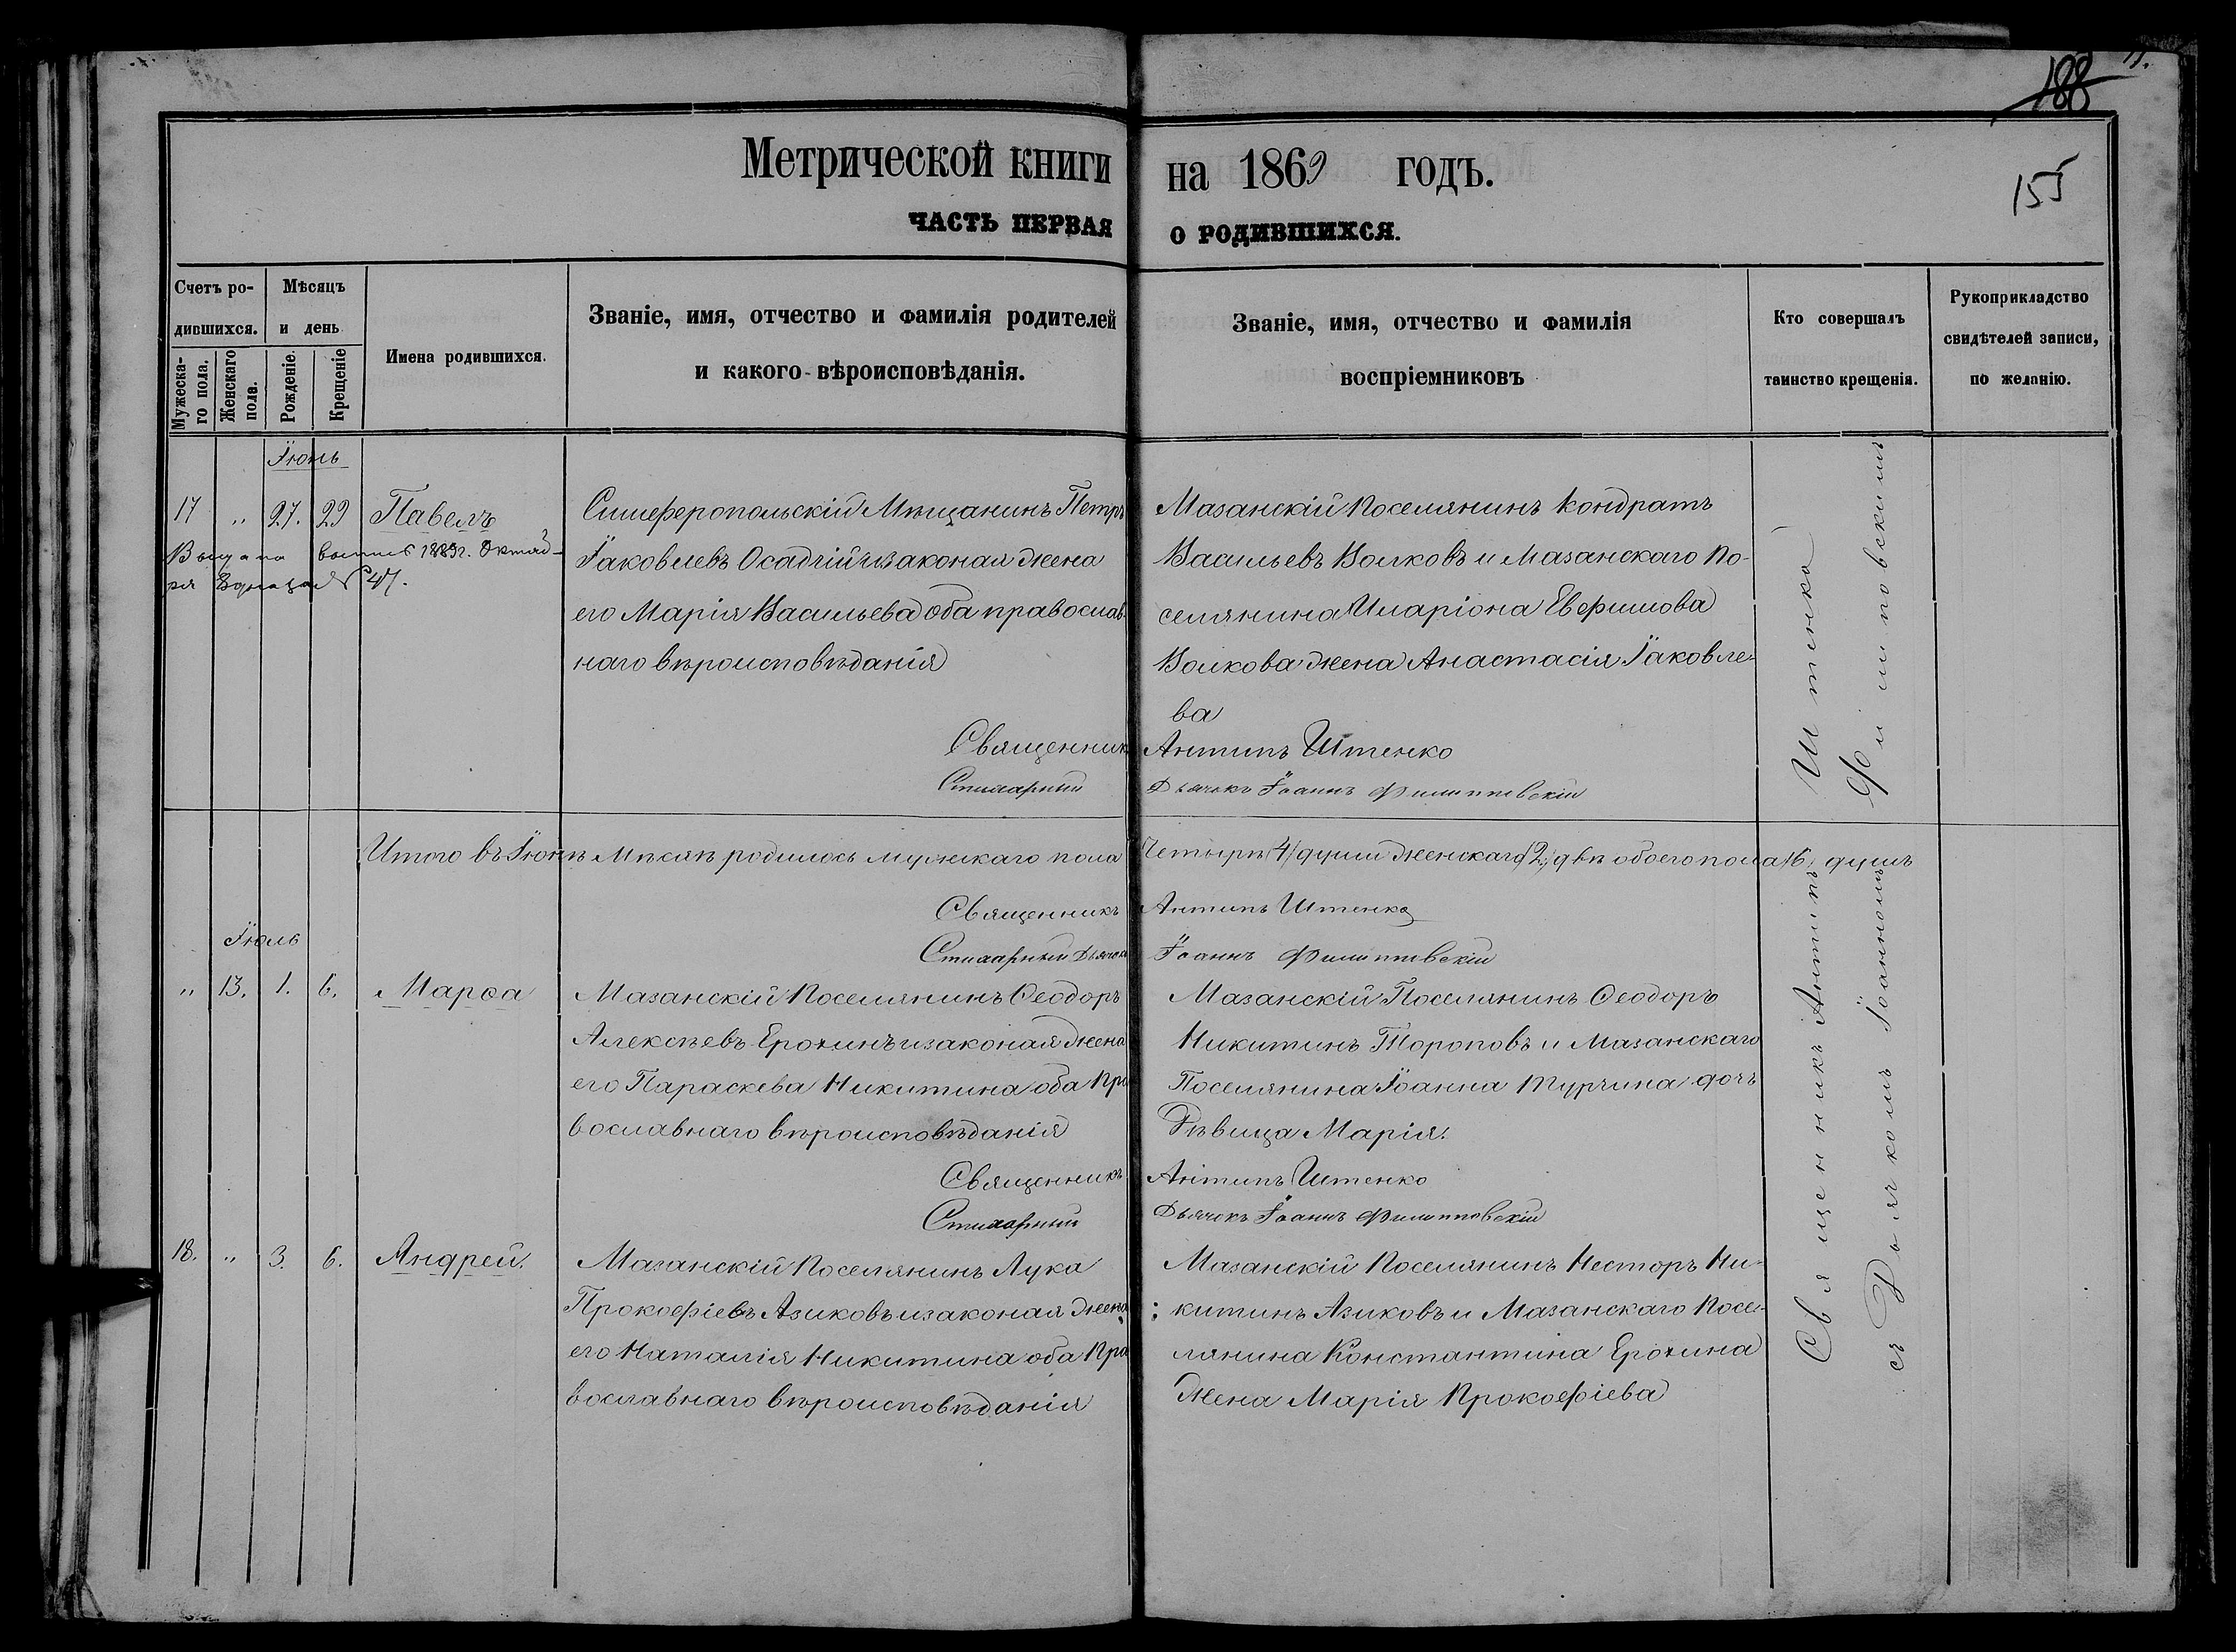 188
Метрической книги на 1869 годъ.
155
ЧАСТЬ ПЕРВАЯ О РОДИВШИХСЯ.
Счетъ ро-
дившихся.
Мужеска-
го пола.
Женскаго
пола.
Мѣсяцъ
и день
Рожденіе.
Крещеніе
Имена родившихся.
Званіе, имя, отчество и фамилія родителей
и какого вѣроисповѣданія.
Званіе, имя, отчество и фамилія
воспріемниковъ
Кто совершалъ
таинство крещенія.
Рукоприкладство
свидѣтелей записи,
по желанію.
Іюнь
17 „ 27. 29 Павелъ
Выдана 1889г. Октяб-
ря 47.
Симферопольскій Мѣщанинъ Петръ
Іаковлевъ Осадчій и законая жена
его Марія Васильева оба православ-
наго вѣроисповѣданія
Мазанскій Поселянинъ Кондратъ
Васильевъ Волковъ и Мазанскаго По-
селянина Иларіона Евфимова
Волкова жена Анастасія Іаковле-
ва
Священникъ Антипъ Штенко
Стихарный Дьячокъ Іоаннъ Филипповскій
Итого въ Іюнѣ Мѣсяцѣ родилось мужскаго пола Четырѣ /4/ души женскаго /2/ двѣ обоего пола /6/ душъ
Священникъ Антипъ Штенко
Стихарный Дьячокъ Іоаннъ Филипповскій
Іюль
„ 13. 1. 6. Марѳа
Мазанскій Поселянинъ Ѳеодоръ
Алексѣевъ Ерохинъ и законая жена
его Параскева Никитина оба Пра
вославнаго вѣроисповѣданія
Мазанскій Поселянинъ Ѳеодоръ
Никитинъ Тороповъ и Мазанскаго
Поселянина Іоанна Турчина дочъ
Дѣвица Марія.
Священникъ Антипъ Штенко
Стихарный Дьячокъ Іоаннъ Филипповскій
18. „ 3. 6. Андрей.
Мазанскій Поселянинъ Лука
Прокофіевъ Азиковъ и законая жена
его Наталія Никитина оба Пра
вославнаго вѣроисповѣданія
Мазанскій Поселянинъ Несторъ Ни-
китинъ Азиковъ и Мазанскаго Посе-
лянина Константина Ерохина
жена Марія Прокофіева
Священникъ Антипъ Штенко
съ Дьячкомъ Іоанномъ Филипповскимъ